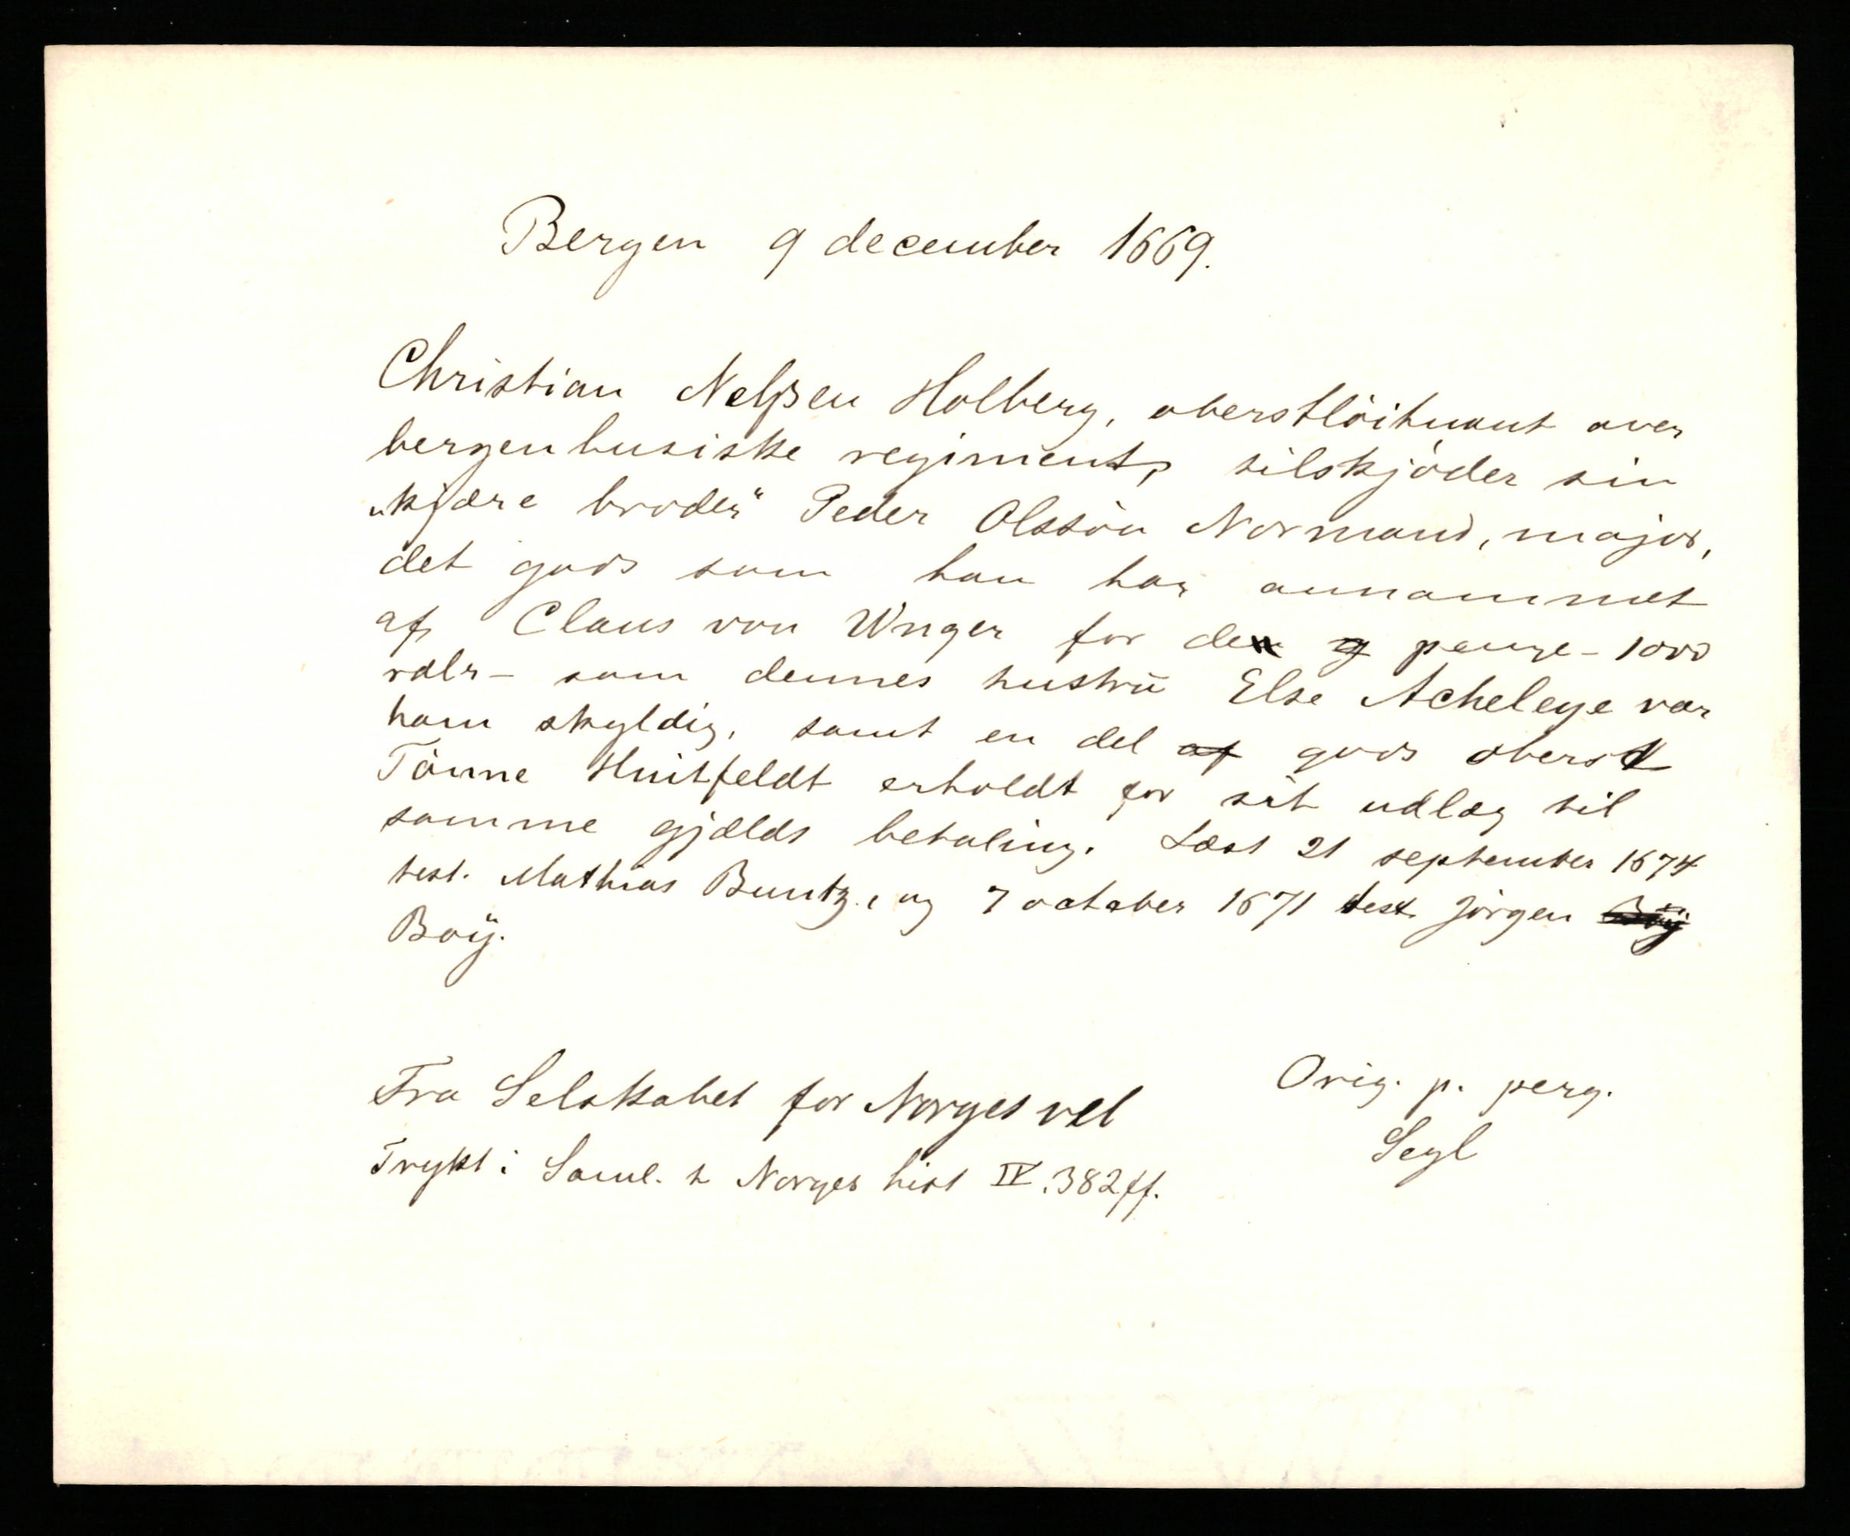 Bergen 9 december 1669.
Christian Nelßen Holberg, oberstlöitnant over
bergenhusiske regiment, tilskjöder sin
„kjære broder“ Peder Olssön Normand, major,
det gods som han har annammet
af Claus von Unger for de penge – 1000
rdlr – som dennes hustru Else Acheleye var
ham skyldig, samt en del gods oberst
Tönne Huitfeldt erholdt for sit udlæg til
samme gjælds betaling. Læst 21 september 1674
test. Mathias Buntz., og 7 october 1671 test. Jörgen
Boÿ.
Fra Selskabet for Norges vel
Trykt i Saml. t Norges hist IV. 382 ff.
Orig. p. perg.
Segl